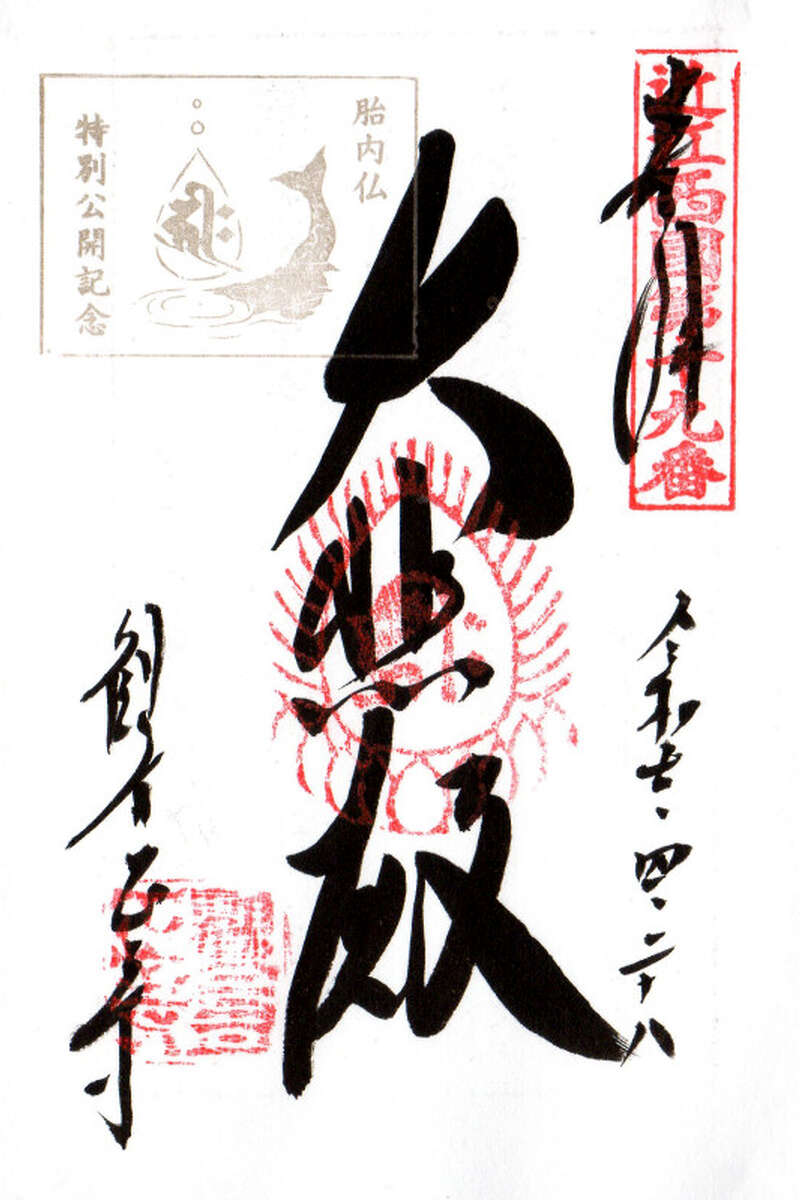 奉拝
近江西國第十九番
令和七、四、二十八
大悲殿
胎内仏
特別公開記念
観音正寺